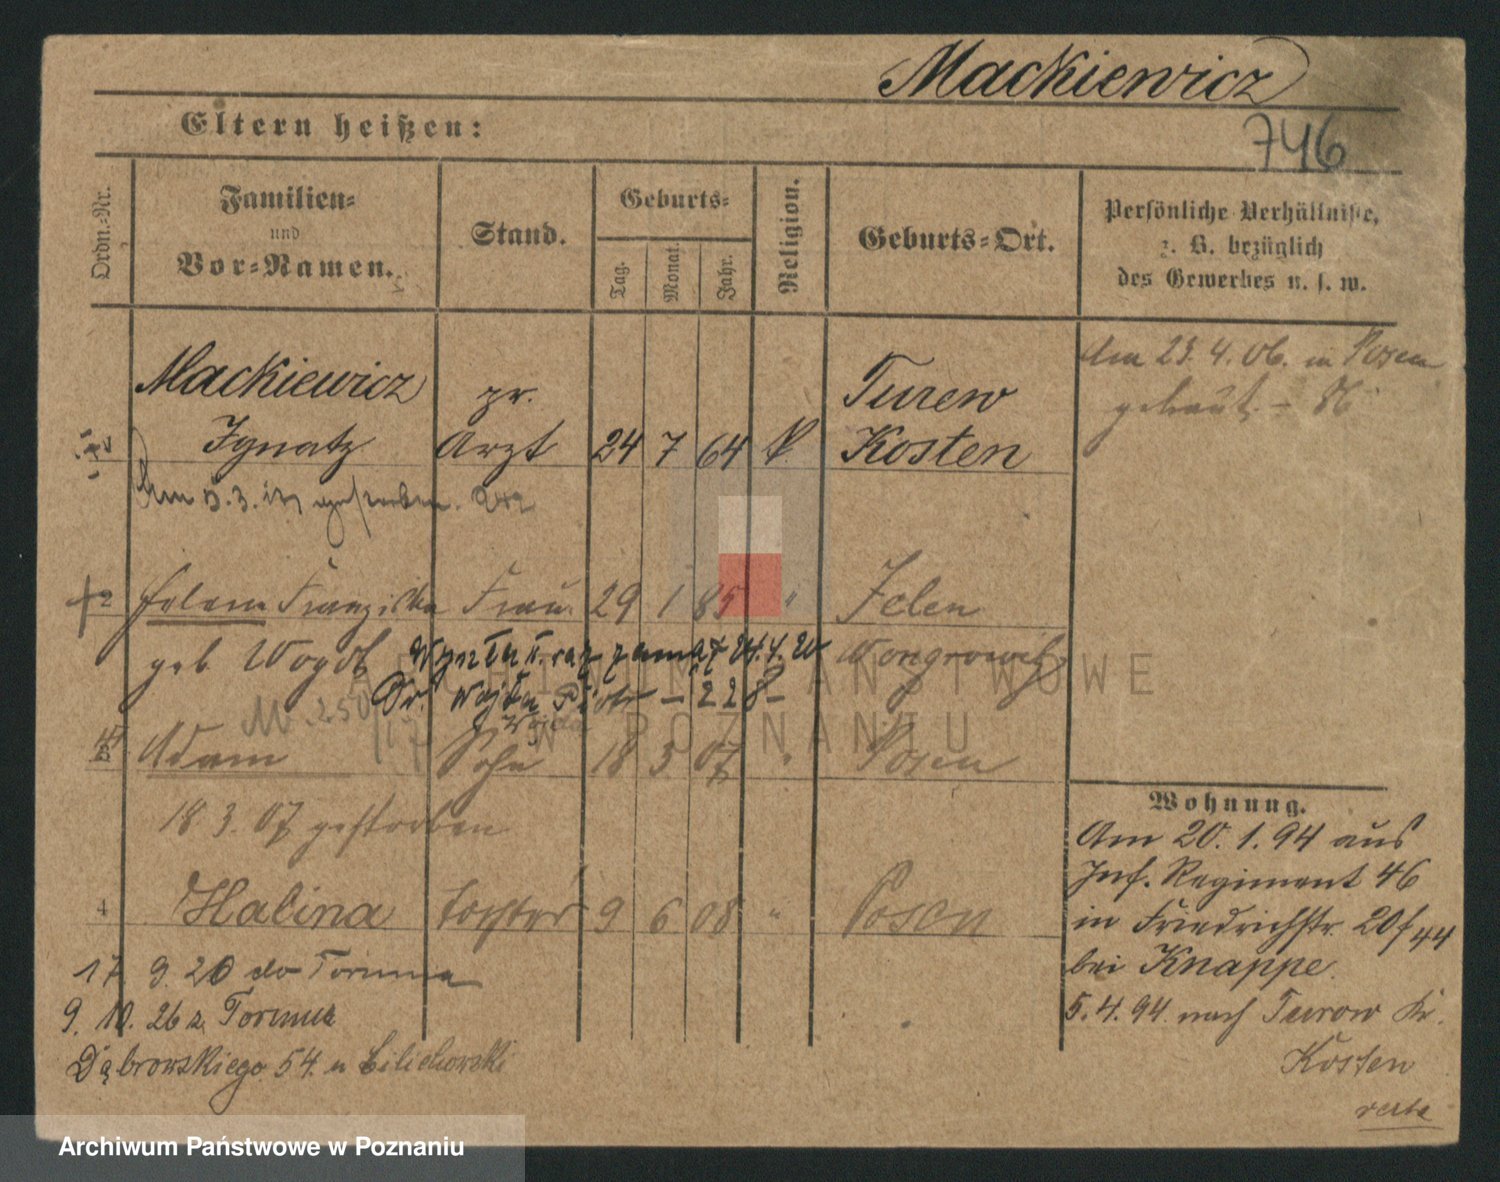 Mackiewicz
746
Eltern heißen:
Ordn.-Nr.
Familien-
und
Vor-Namen.
Stand.
Geburts-
Tag.
Monat.
Jahr.
Religion.
Geburts-Ort.
Persönliche Verhältnisse,
z. B. bezüglich
des Gewerbes u. s. w.
Am 23.4.06. in Posen
getraut.
Mackiewicz pr. Turew
Ignatz Arzt 24 7 64 k. Kosten
Am 5.3. gestorben.
2 Helene Franziska Frau 29 1 85 " Jelen
geb. Wongrowitz
Dr. Wojda Piotr - 228-
Wojda
M. 250/17
Adam Sohn 18 3 07 " Posen
18 3. 07 gestorben
4 Halina Tochter 9 6 08 " Posen
17 9. 20 do Torunia
9. 10. 26 z Torunia
Dąbrowskiego 54. u
Wohnung.
Am 20.1.94 aus
Inf. Regiment 46
in Friedrichstr. 20/44
bei Knappe.
5.4.94. nach Turow Kr.
Kosten
verte
ARCHIWUM PAŃSTWOWE
W POZNANIU
Archiwum Państwowe w Poznaniu